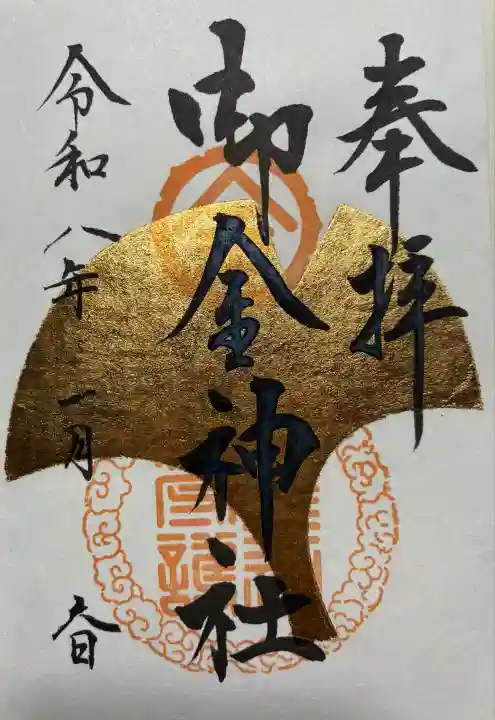 奉拝
御金神社
令和八年一月吉日